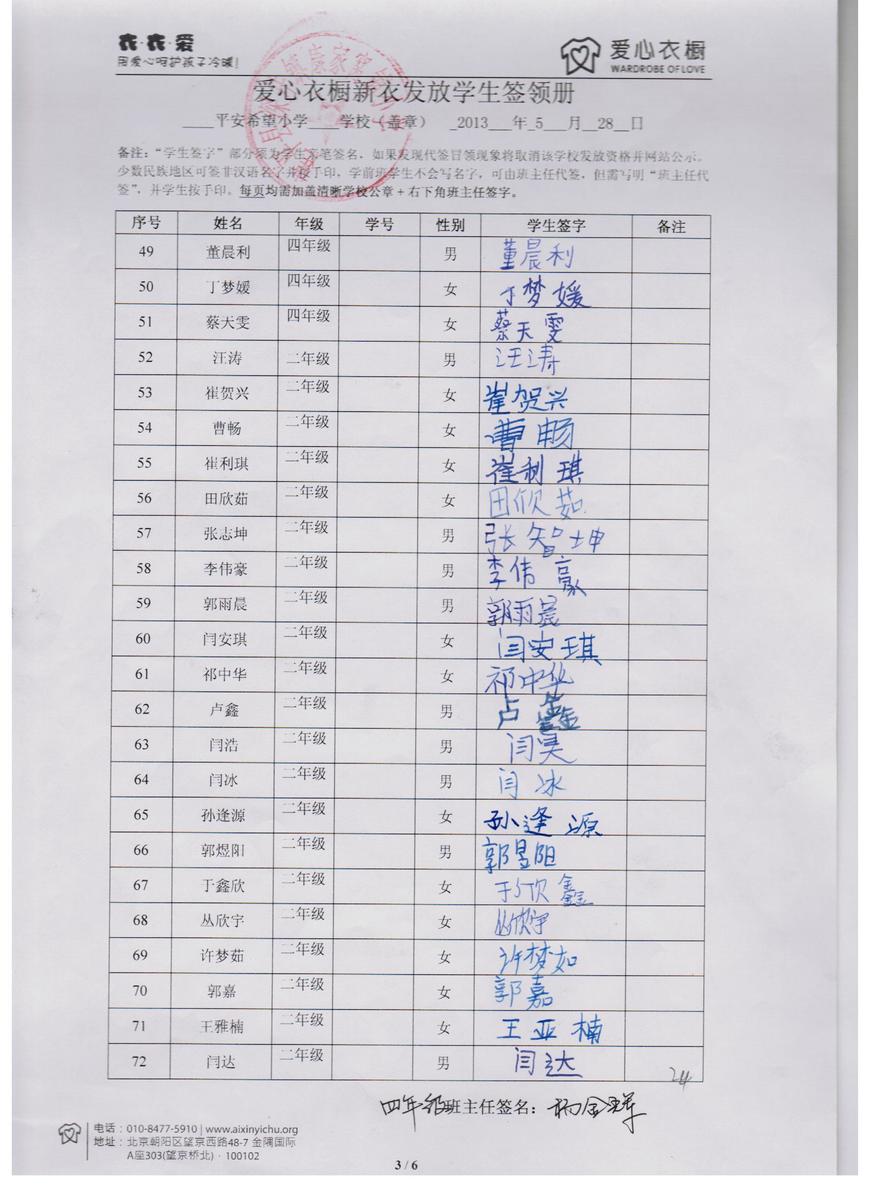 衣·衣·爱
用爱心呵护孩子冷暖！
爱心衣橱
WARDROBE OF LOVE
爱心衣橱新衣发放学生签领册
____平安希望小学____学校（盖章） _2013___年_5___月__28__日
备注：“学生签字”部分须为学生亲笔签名，如果发现代签冒领现象将取消该学校发放资格并网站公示。
少数民族地区可签非汉语名字并按手印，学前班学生不会写名字，可由班主任代签，但需写明“班主任代
签”，并学生按手印。每页均需加盖清晰学校公章＋右下角班主任签字。
序号 姓名 年级 学号 性别 学生签字 备注
49 董晨利 四年级 男 董晨利
50 丁梦媛 四年级 女 丁梦媛
51 蔡天雯 四年级 女 蔡天雯
52 汪涛 二年级 男 汪涛
53 崔贺兴 二年级 女 崔贺兴
54 曹畅 二年级 女 曹畅
55 崔利琪 二年级 女 崔利琪
56 田欣茹 二年级 女 田欣茹
57 张志坤 二年级 男 张智坤
58 李伟豪 二年级 男 李伟豪
59 郭雨晨 二年级 男 郭雨晨
60 闫安琪 二年级 女 闫安琪
61 祁中华 二年级 女 祁中华
62 卢鑫 二年级 男 卢鑫
63 闫浩 二年级 男 闫昊
64 闫冰 二年级 男 闫冰
65 孙逢源 二年级 女 孙逢源
66 郭煜阳 二年级 男 郭昱阳
67 于鑫欣 二年级 女 于欣鑫
68 丛欣宇 二年级 女 丛欣宇
69 许梦茹 二年级 女 许梦如
70 郭嘉 二年级 女 郭嘉
71 王雅楠 二年级 女 王亚楠
72 闫达 二年级 男 闫达
24
四年级班主任签名：杨金
电话：010-8477-5910 | www.aixinyichu.org
地址：北京朝阳区望京西路48-7 金隅国际
A座303(望京桥北)·100102
3 / 6